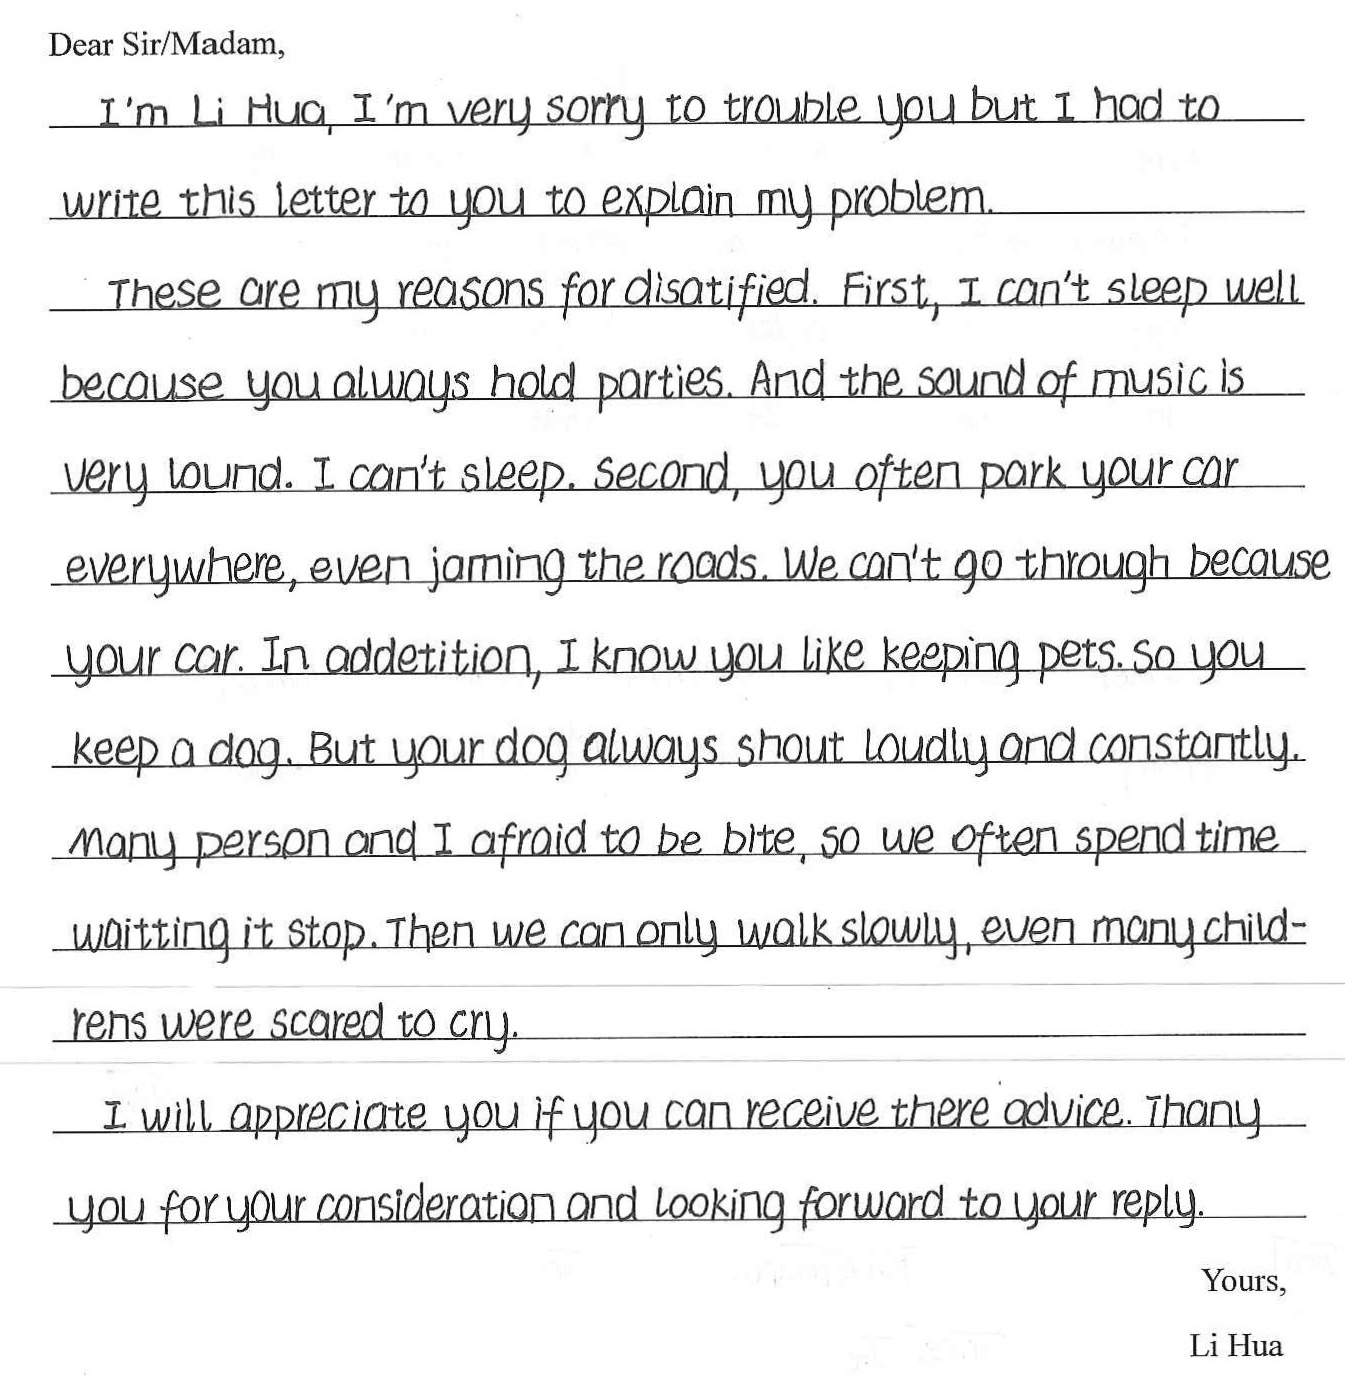 Dear Sir/Madam,
I'm Li Hua, I'm very sorry to trouble you but I had to
write this letter to you to explain my problem.
These are my reasons for disatified. First, I can't sleep well
because you always hold parties. And the sound of music is
very lound. I can't sleep. Second, you often park your car
everywhere, even jaming the roads. We can't go through because
your car. In addetition, I know you like keeping pets. So you
keep a dog. But your dog always shout loudly and constantly.
Many person and I afraid to be bite, so we often spend time
waitting it stop. Then we can only walk slowly, even many child-
rens were scared to cry.
I will appreciate you if you can receive there advice. Thany
you for your consideration and looking forward to your reply.
Yours,
Li Hua